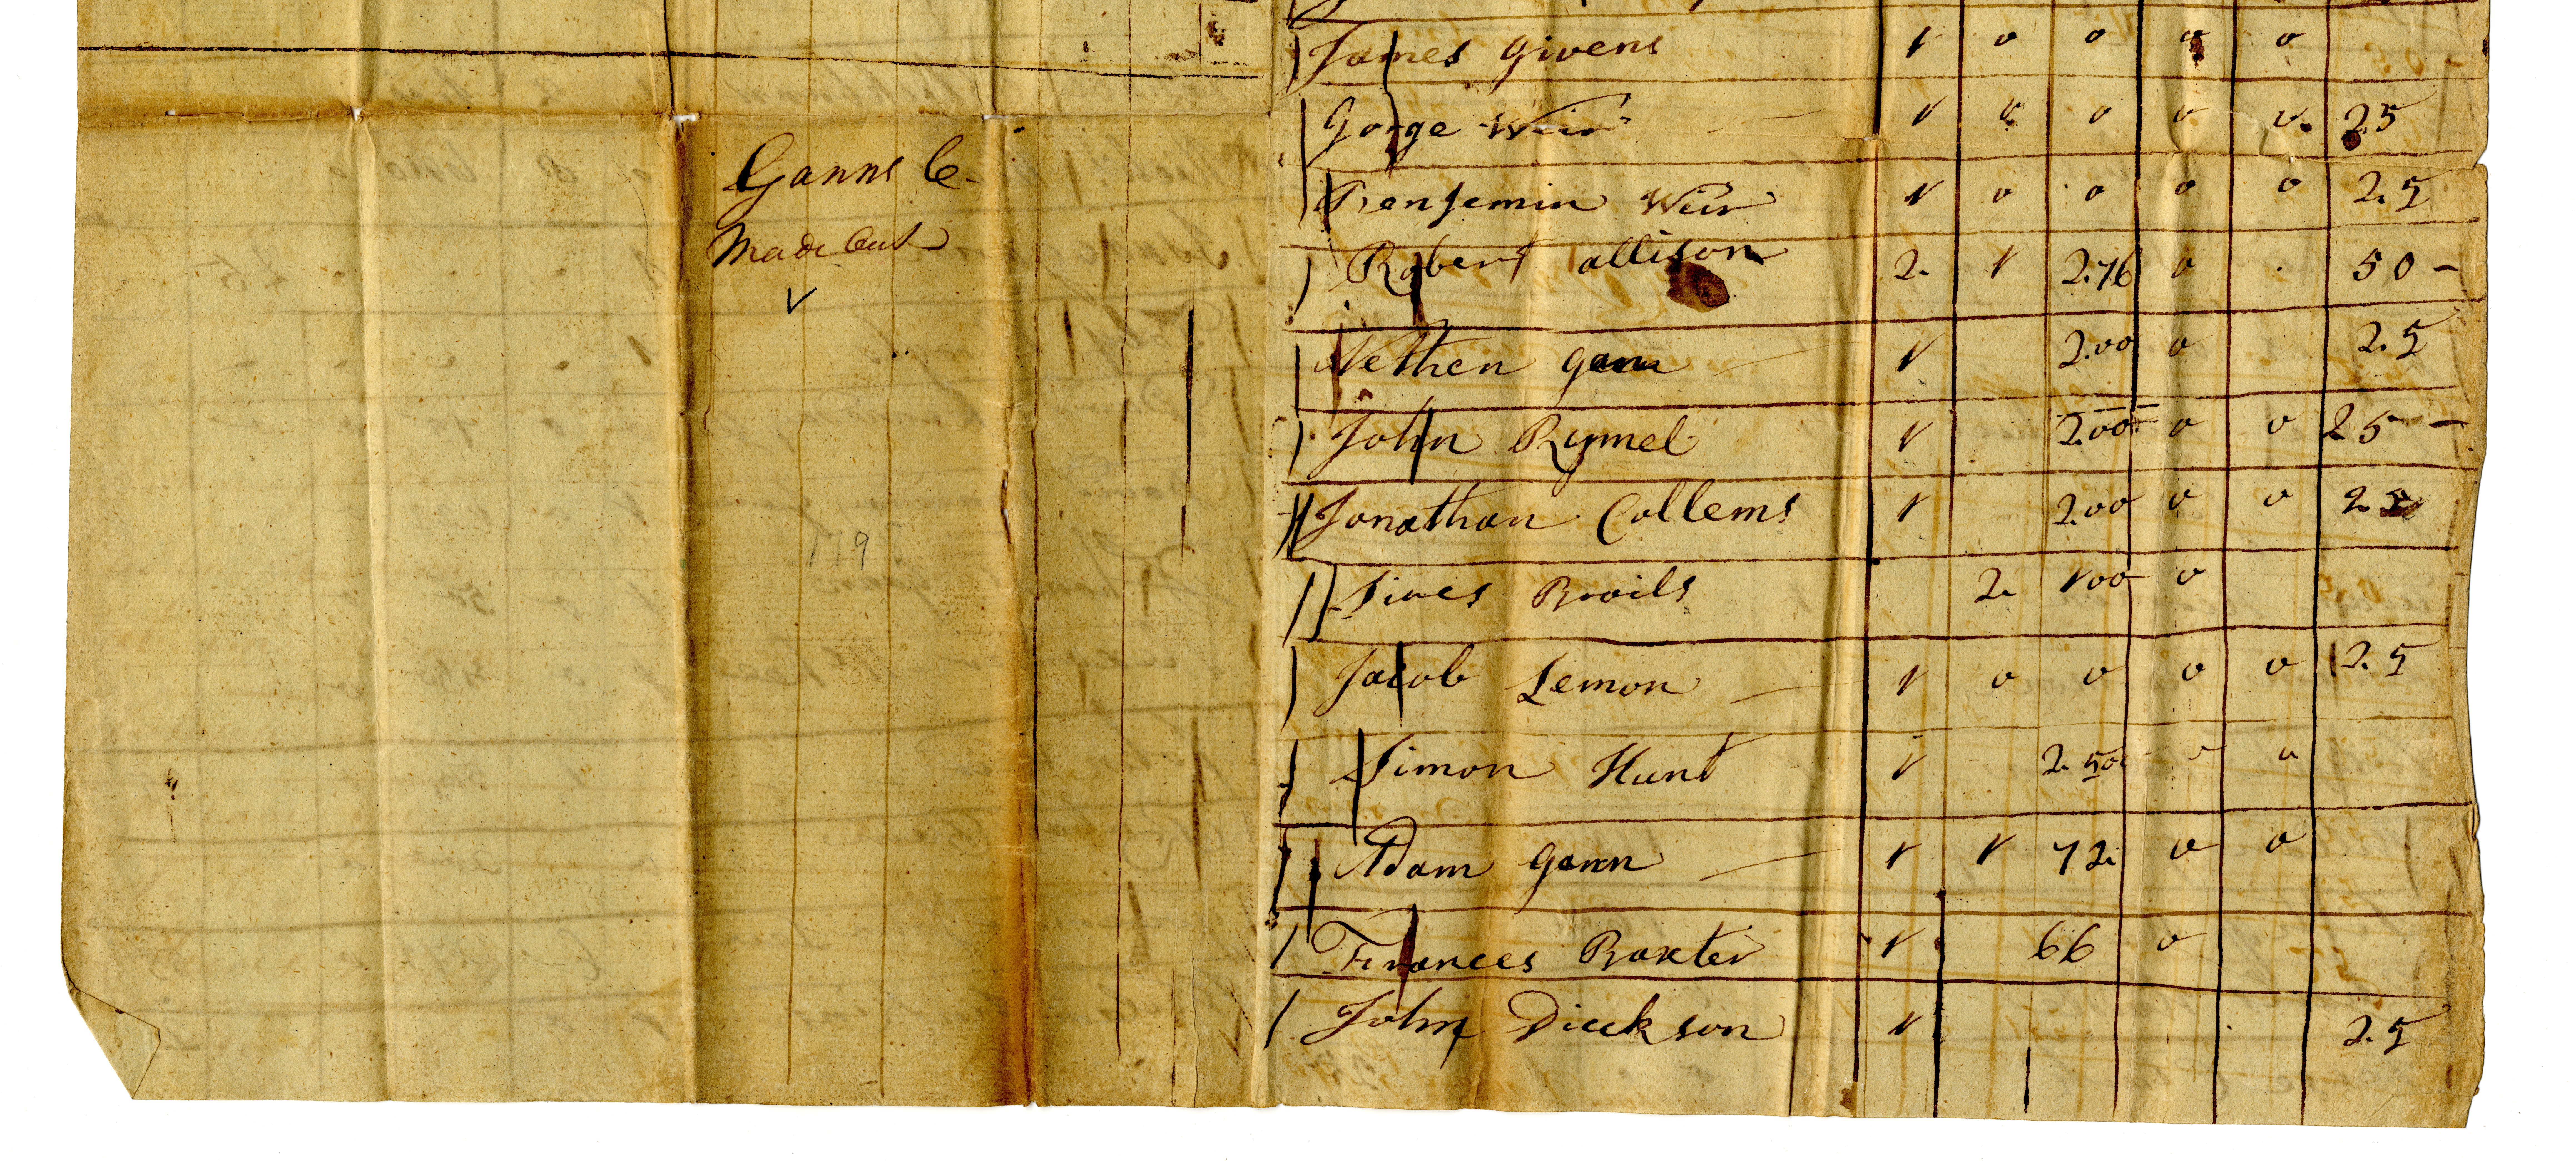 Ganns C
Made Out
v
179
James Givens 1 0 0 0 0
Gorge Weir 1 0 0 0 0 25
Benjemin Weir 1 0 0 0 0 25
Robert allison 2 1 276 0 50
Nethen gann 1 200 0 25
John Rymel 1 200 0 0 25
Jonathan Collems 1 200 0 0 25
Simes Broils 2 100 0
Jacob Lemon 1 0 0 0 0 25
Simon Hunt 1 250 0 0
Adam gann 1 1 72 0 0
Frances Baxter 1 66 0
John Dickson 1 25